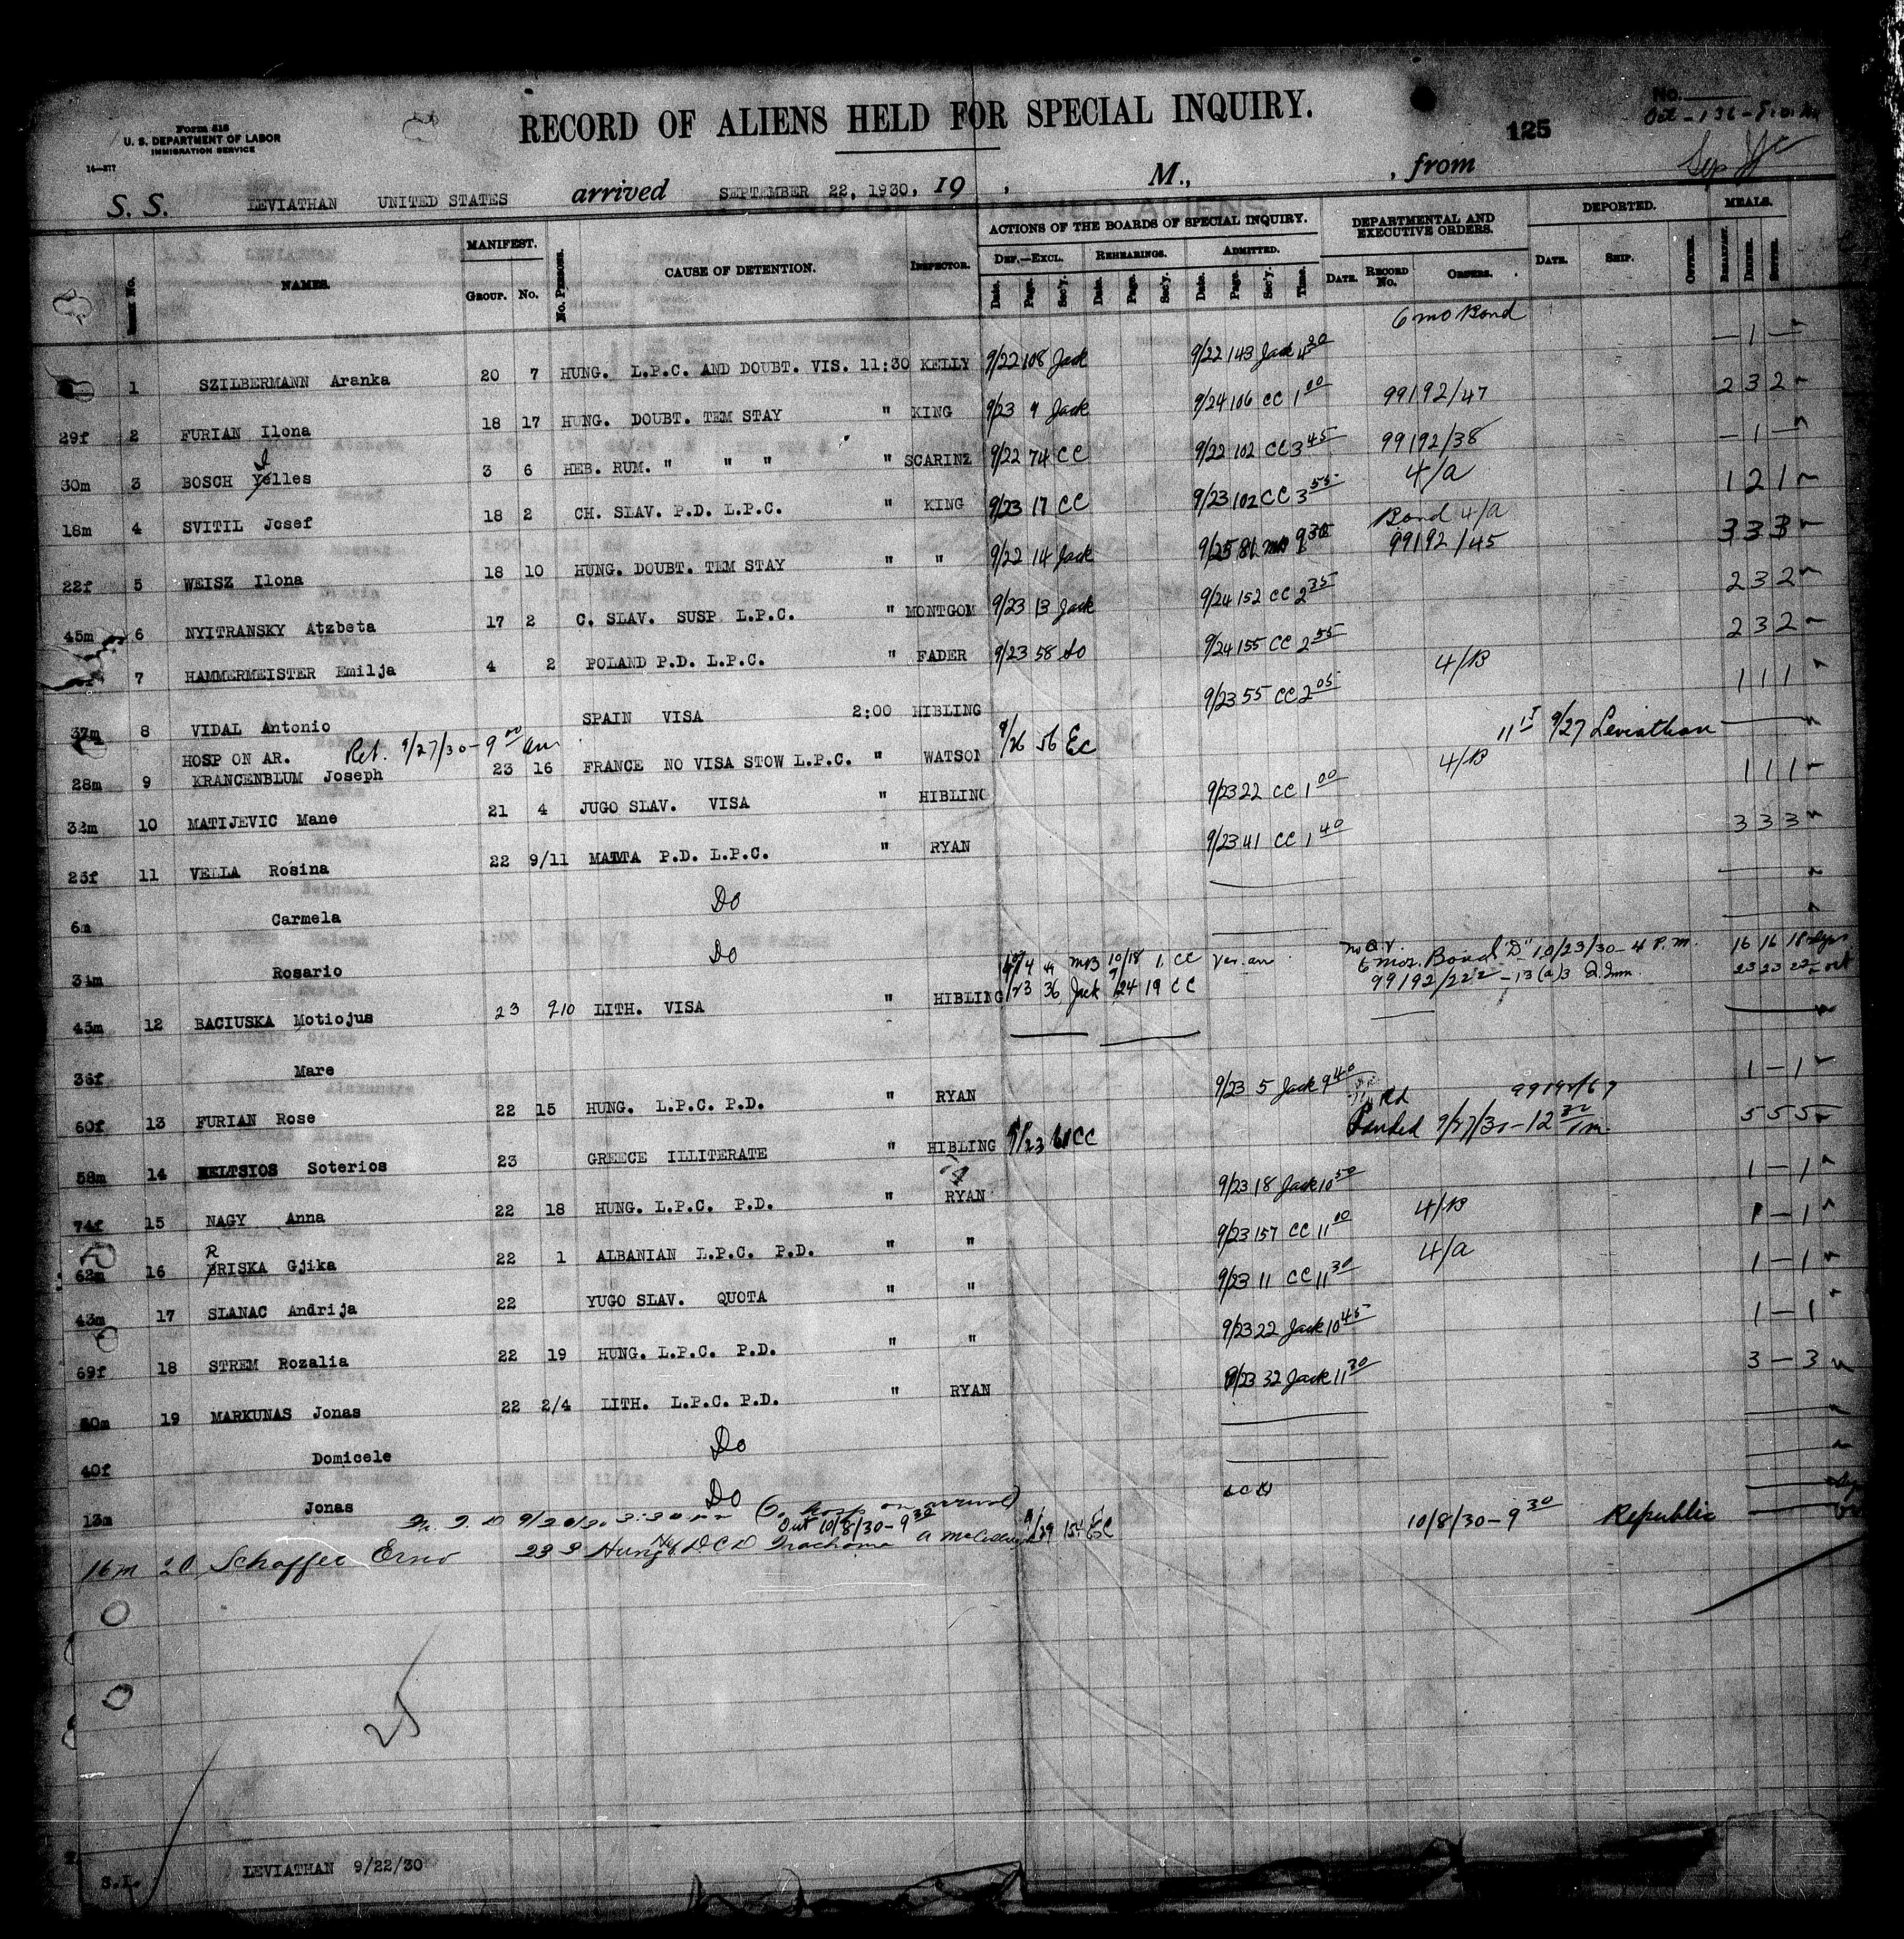 Form 518
U. S. DEPARTMENT OF LABOR
IMMIGRATION SERVICE
14—577
RECORD OF ALIENS HELD FOR SPECIAL INQUIRY.
No.
125
S. S. LEVIATHAN UNITED STATES arrived SEPTEMBER 22, 1930, 19 , M., , from
NAMES. MANIFEST. GROUP. NO. No. Persons. CAUSE OF DETENTION. INSPECTOR. ACTIONS OF THE BOARDS OF SPECIAL INQUIRY. DEPARTMENTAL AND EXECUTIVE ORDERS. DEPORTED. MEALS.
DEF.—EXCL. REHEARINGS. ADMITTED.
Date. Page. Sec'y. Date. Page. Sec'y. Date. Page. Sec'y. Time. DATE. RECORD NO. ORDERS. DATE. SHIP. OFFICER. BREAKFAST. DINNER. SUPPER.
6 mo Bond
1 SZILBERMANN Aranka 20 7 HUNG. L.P.C. AND DOUBT. VIS. 11:30 KELLY 9/22 108 Jack 9/22 143 Jack 4 30 — 1 —
29f 2 FURIAN Ilona 18 17 HUNG. DOUBT. TEM STAY " KING 9/23 9 Jack 9/24 106 CC 1 00 99192/47 2 3 2
30m 3 BOSCH Yelles 3 6 HEB. RUM. " " " " SCARINZ 9/22 74 CC 9/22 102 CC 3 45 99192/38 — 1 —
18m 4 SVITIL Josef 18 2 CH. SLAV. P.D. L.P.C. " KING 9/23 17 CC 9/23 102 CC 3 55 4/a 1 2 1
Bond 4/a
22f 5 WEISZ Ilona 18 10 HUNG. DOUBT. TEM STAY " " 9/22 14 Jack 9/25 81 9 30 99192/45 3 3 3
45m 6 NYITRANSKY Atzbeta 17 2 C. SLAV. SUSP L.P.C. " MONTGOM 9/23 13 Jack 9/24 152 CC 2 35 2 3 2
7 HAMMERMEISTER Emilja 4 2 POLAND P.D. L.P.C. " FADER 9/23 58 9/24 155 CC 2 55 2 3 2
37m 8 VIDAL Antonio SPAIN VISA 2:00 HIBLING 9/23 55 CC 2 05 4/B 1 1 1
HOSP ON AR. Ret. 9/27/30 - 9 00 am
28m 9 KRANCENBLUM Joseph 23 16 FRANCE NO VISA STOW L.P.C. " WATSON 9/26 56 EC 9/27 Leviathan
32m 10 MATIJEVIC Mane 21 4 JUGO SLAV. VISA " HIBLING 9/23 22 CC 1 00 4/B 1 1 1
25f 11 VELLA Rosina 22 9/11 MALTA P.D. L.P.C. " RYAN 9/23 41 CC 1 40 3 3 3
6m Carmela Do
31m Rosario Do
10/18 1 CC 6 mos. Bond "D" 10/23/30 - 4 P.M. 16 16 18
45m 12 BACIUSKA Motiojus 23 910 LITH. VISA " HIBLING 9/23 36 Jack 9/24 19 CC 23 23 22
36f Mare
60f 13 FURIAN Rose 22 15 HUNG. L.P.C. P.D. " RYAN 9/23 5 Jack 9 40 1 — 1
58m 14 MELTSIOS Soterios 23 GREECE ILLITERATE " HIBLING 9/23 61 CC Landed 9/27/30 - 12 5 5 5
74f 15 NAGY Anna 22 18 HUNG. L.P.C. P.D. " RYAN 9/23 18 Jack 10 50 1 — 1
R
62m 16 BRISKA Gjika 22 1 ALBANIAN L.P.C. P.D. " " 9/23 157 CC 11 00 4/B 1 — 1
43m 17 SLANAC Andrija 22 YUGO SLAV. QUOTA " " 9/23 11 CC 11 30 4/a 1 — 1
69f 18 STREM Rozalia 22 19 HUNG. L.P.C. P.D. " " 9/23 22 Jack 10 45 1 — 1
19 MARKUNAS Jonas 22 2/4 LITH. L.P.C. P.D. " RYAN 9/23 32 Jack 11 30 3 — 3
40f Domicele Do
13m Jonas Do
(To Hosp on arrival) Out 10/8/30 - 9 30
16m 20 Schaffer Erno 23 Hung. DCD Trachoma 9/29 EC 10/8/30 - 9 30 Republic
25
S.I. LEVIATHAN 9/22/30